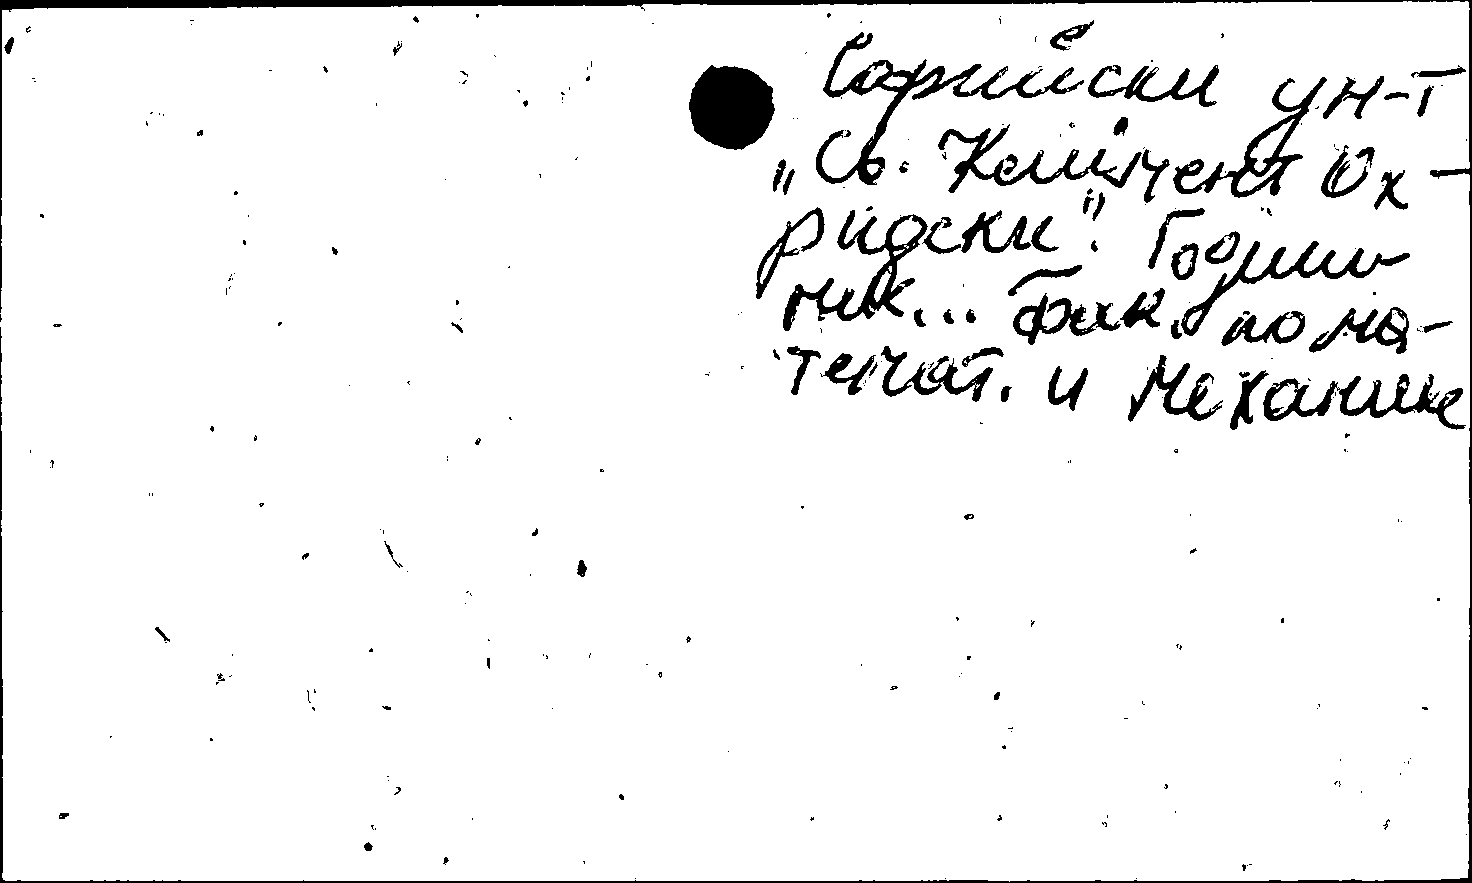 Софийски ун-т
„Св. Климент Ох-
ридски". Годиш-
ник... Фак. по ма-
темат. и механика